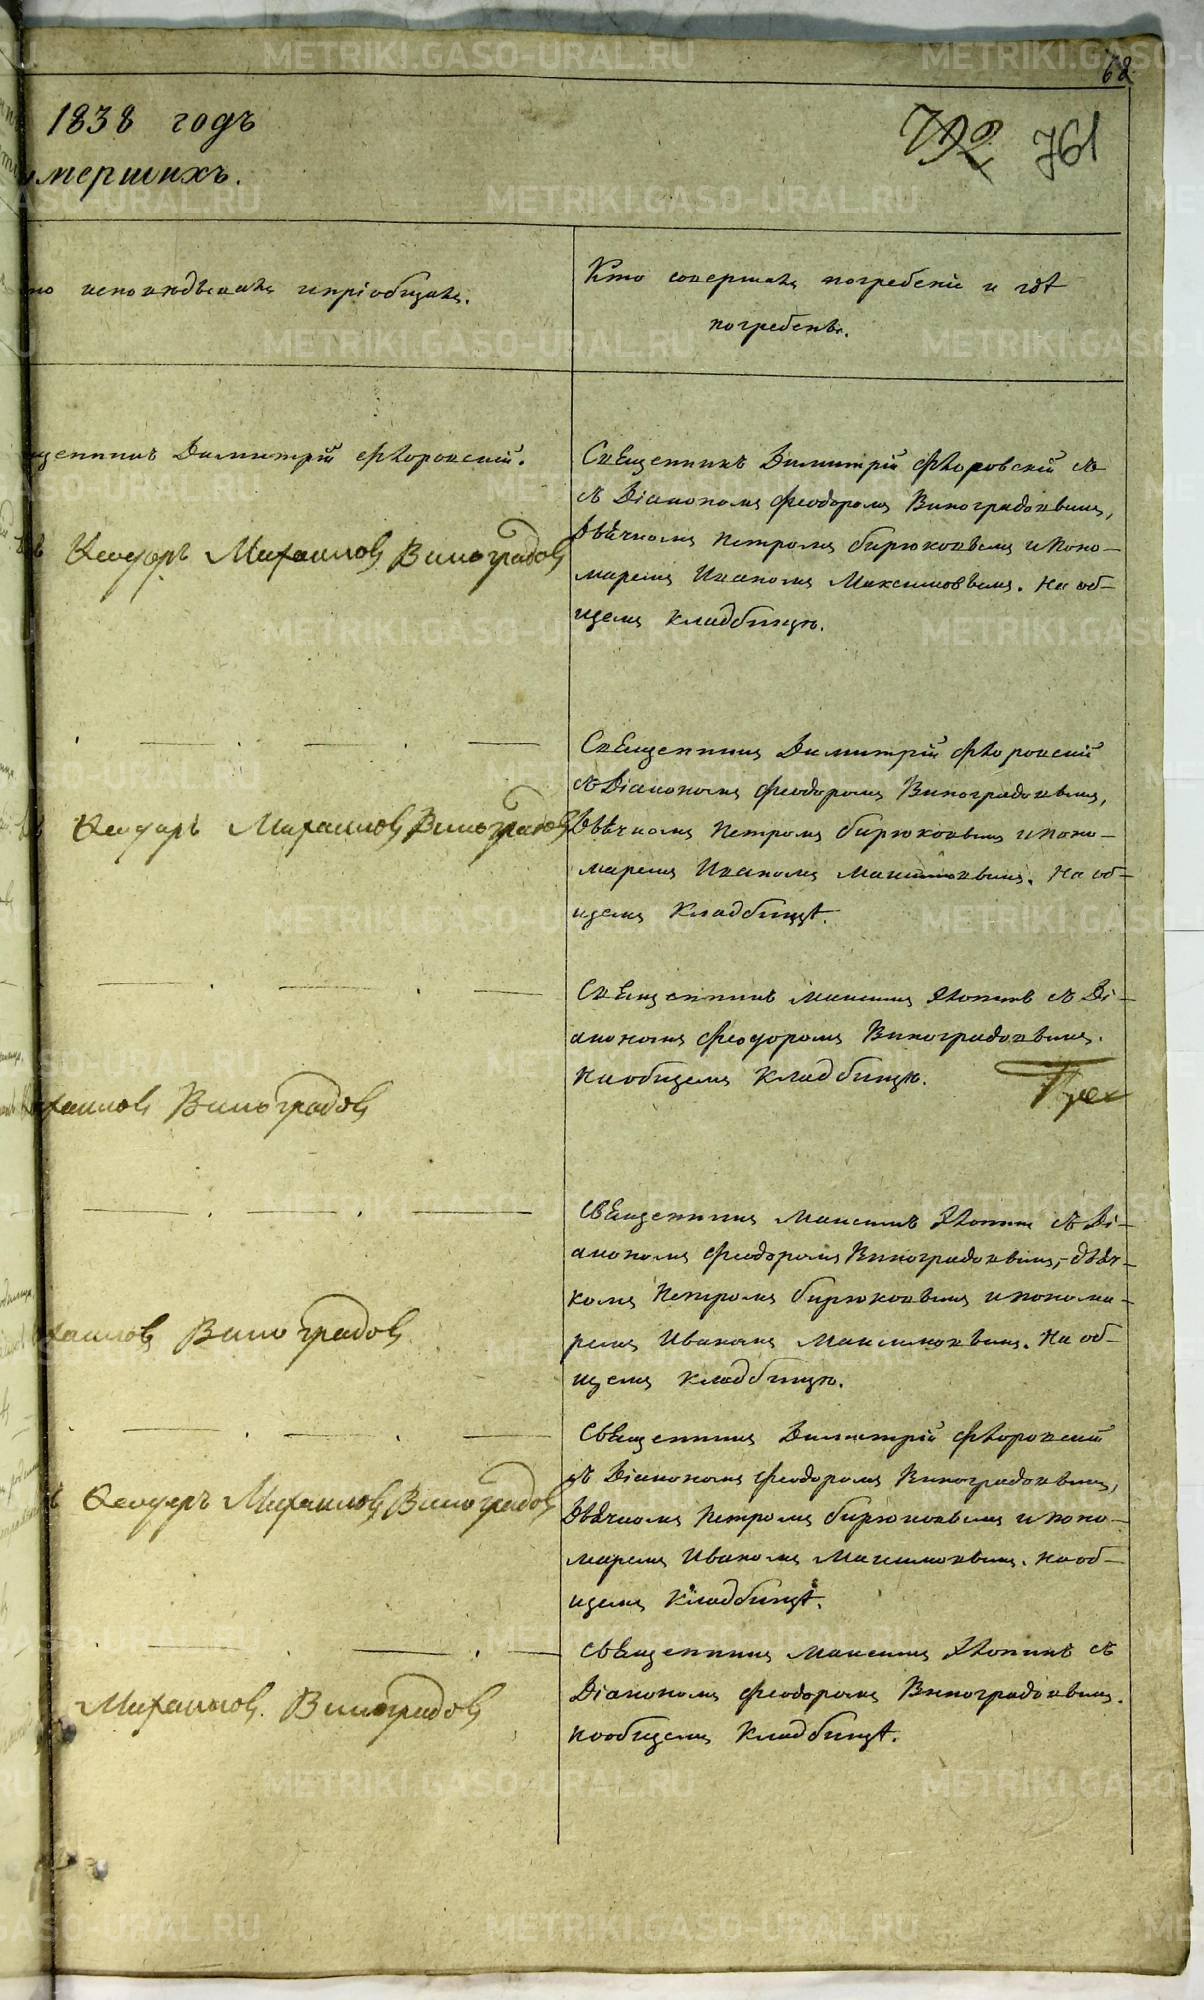 62
1838 годъ
792 761
умершихъ.
то исповѣдывалъ и пріобщалъ.
Кто совершалъ погребеніе и гдѣ
погребенъ.
щенникъ Димитрій Флоровскій.
Священникъ Димитрій Флоровскій съ
съ Діакономъ Феодоромъ Виноградовымъ,
Дьячкомъ Петромъ Бирюковымъ и поно-
маремъ Иваномъ Максимовымъ. На об-
щемъ кладбищѣ.
Ѳеодоръ Михаиловъ Виноградовъ
Священникъ Димитрій Флоровскій
съ Діакономъ Феодоромъ Виноградовымъ,
Дьячкомъ Петромъ Бирюковымъ и поно-
маремъ Иваномъ Максимовымъ. На об-
щемъ кладбищѣ.
Ѳеодоръ Михаиловъ Виноградовъ
Священникъ Максимъ съ Ді-
акономъ Феодоромъ Виноградовымъ.
На общемъ кладбищѣ.
Трех
хаиловъ Виноградовъ
Священникъ Максимъ съ Ді-
акономъ Феодоромъ Виноградовымъ, дьяч-
комъ Петромъ Бирюковымъ и понома-
ремъ Иваномъ Максимовымъ. На об-
щемъ кладбищѣ.
хаиловъ Виноградовъ
Священникъ Димитрій Флоровскій
съ Діакономъ Феодоромъ Виноградовымъ,
Дьячкомъ Петромъ Бирюковымъ и поно-
маремъ Иваномъ Максимовымъ. На об-
щемъ кладбищѣ.
Ѳеодоръ Михаиловъ Виноградовъ
Священникъ Максимъ съ
Діакономъ Феодоромъ Виноградовымъ.
На общемъ кладбищѣ.
Михаиловъ Виноградовъ
METRIKI.GASO-URAL.RU